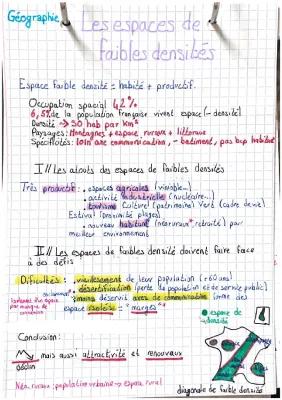 Géographie
Les espaces de
faibles densités
Espace faible densité = habité + productif.
Occupation spacial 42%
6,5% de la population française vivent espace (- densité)
Densité → 30 hab par Km²
Paysages: Montagnes + espace ruraux + littoraux
Spécifités: loin axe communication, - batiment, pas bcp habité
I // Les atouts des espaces de faibles densités
Très productif : • espaces agricoles (vignoble...)
• activité industrielle (nucléaire...)
• tourisme Culturel (patrimoine) Vert (cadre de vie)
Estival (proximité plages)
• nouveau habitant (néoruraux* retraité) par
meilleur environnement
II // Les espaces de faibles densité doivent faire face
à des défis
Difficultés : • vieillissement de leur population (+60 ans)
• désertification (perte de population et de service public)
• moins déservit axes de communication forme des
espace isolés = "marges"
espace de
densité
Conclusion:
mais aussi attractivité et renouvaux
déclin
Néo ruraux : population urbaine → espace rural
diagonale de faible densité